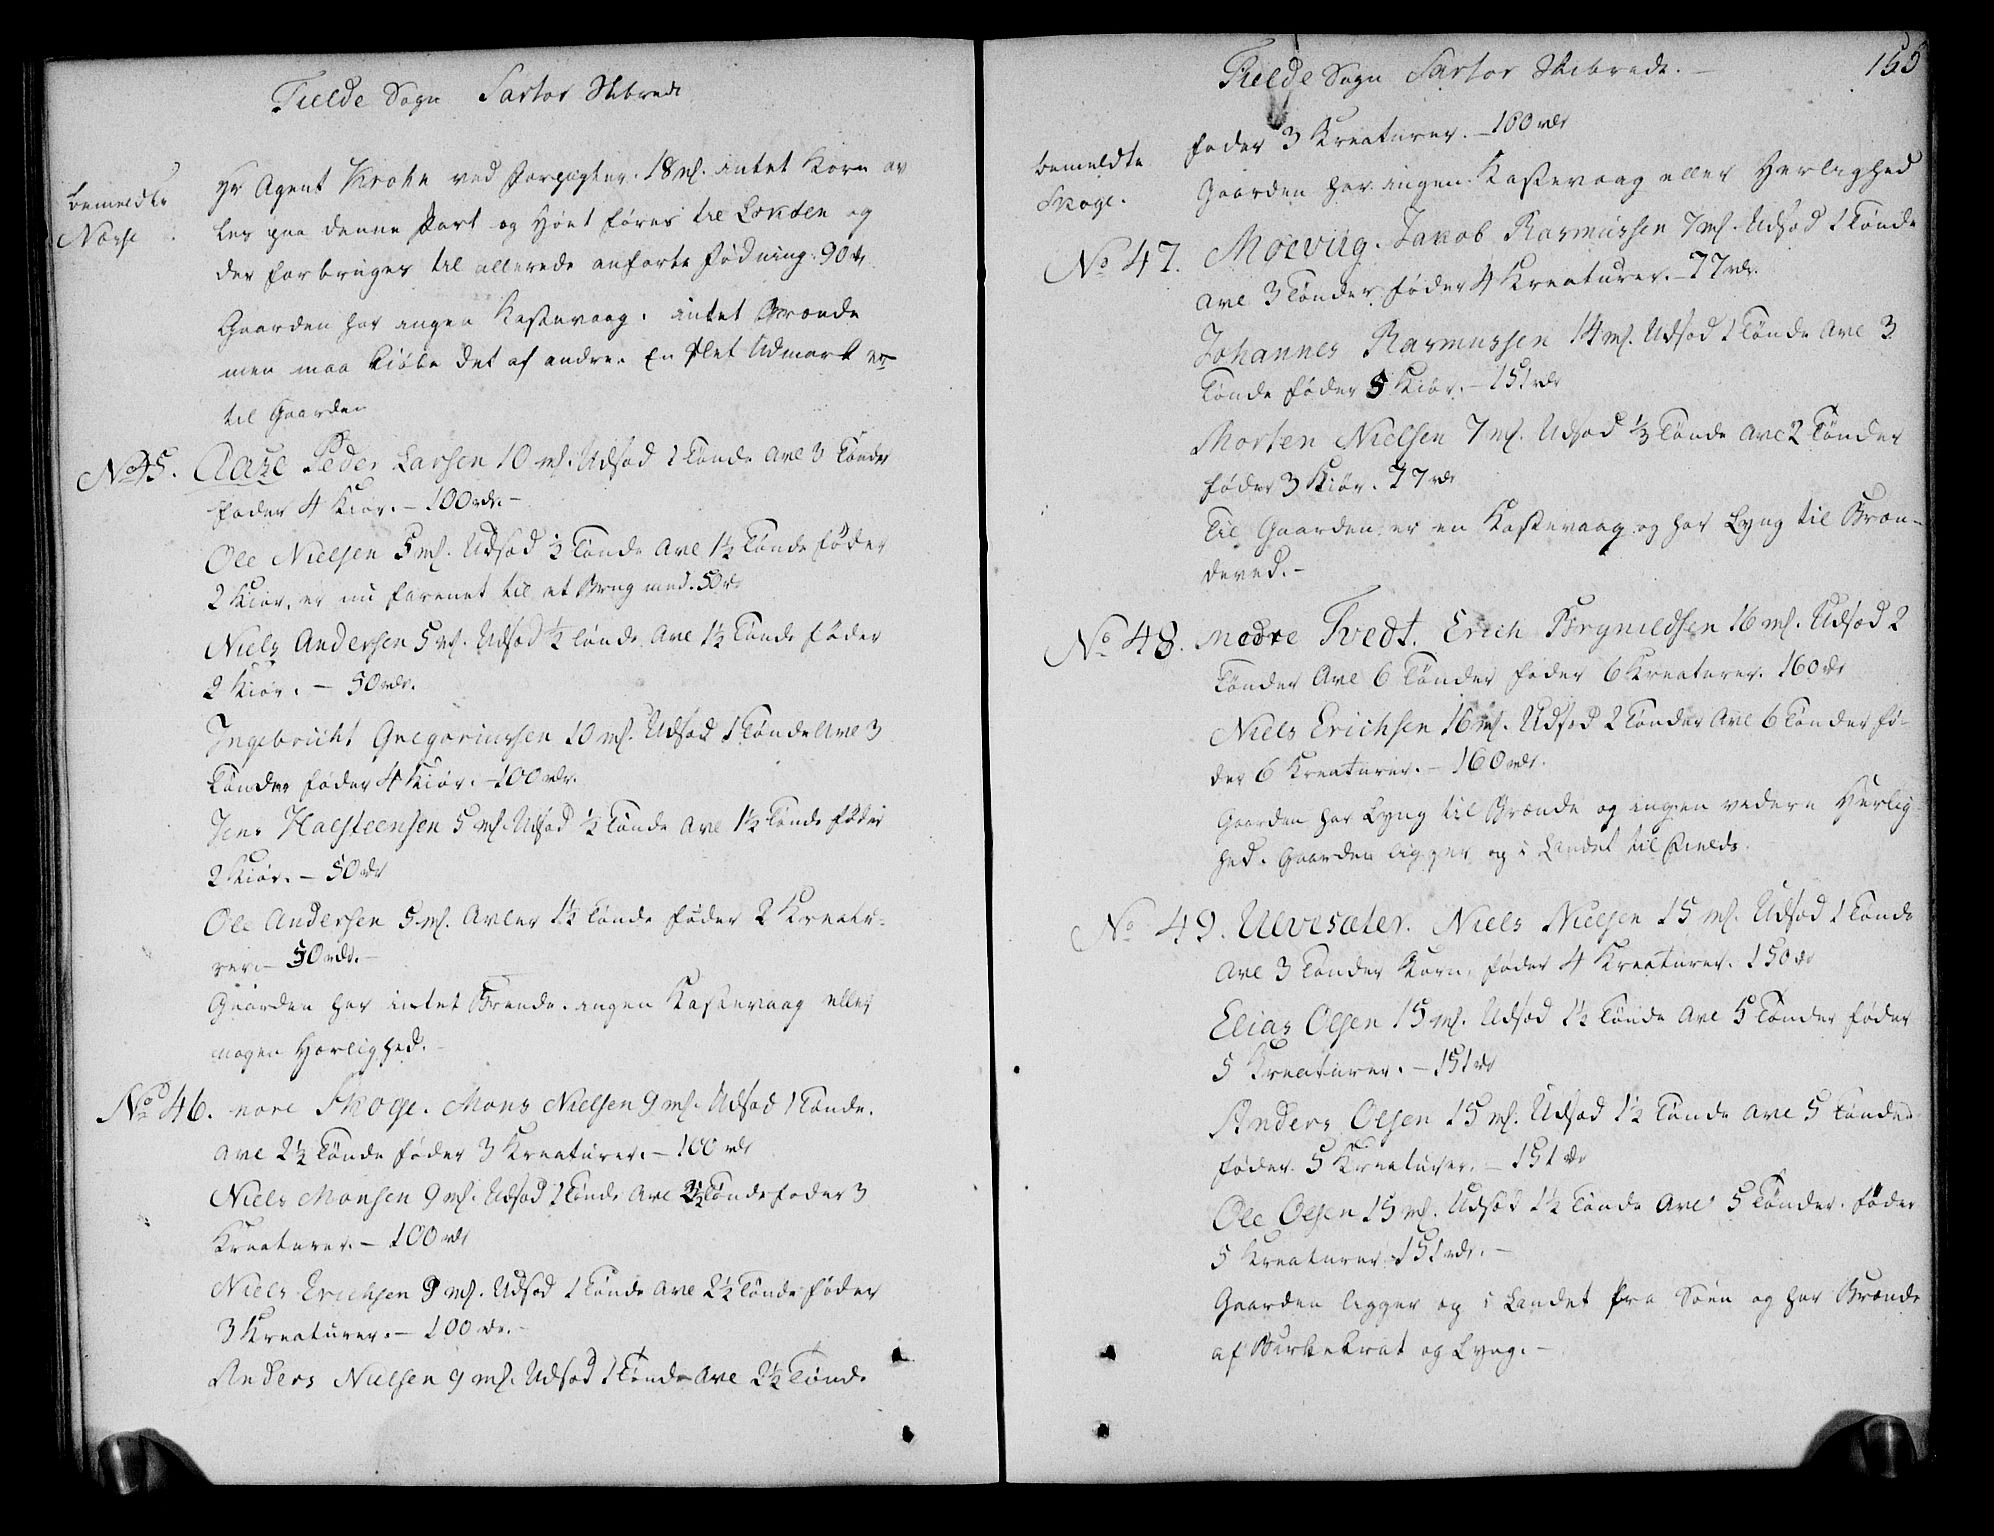 Fielde Sogn Sartor Skibrede
bemeldte
Norse
Hr Agent Krohn ved Forpagter. 18 mℓ. intet Korn av
les paa denne Part og Höet föres til Lokøen og
der forbruges til allerede anförte födning. 90 rdr
Gaarden har ingen Kastevaag. intet Brænde
men maa kiöbe det af andre. En flet Udmark er
til Gaarden
No 45. Aase Peder Larsen 10 mℓ. Udsæd 1 Tönde Avl 3 Tönder
föder 4 Kiör. – 100 rdr. –
Ole Nielsen 5 mℓ. Udsæd ½ Tönde Avl 1½ Tönde föder
2 Kiör. er nu forenet til et Brug med. 50 rdr
Niels Andersen 5 mℓ. Udsæd ½ Tönde Avl 1½ Tönde föder
2 Kiör. – 50 rdr.
Ingebricht Gregoriussen 10 mℓ. Udsæd 1 Tönde Avl 3
Tönder föder 4 Kiör. – 100 rdr.
Jens Halsteensen 5 mℓ. Udsæd ½ Tönde Avl 1½ Tönde föder
2 Kiör. – 50 rdr
Ole Andersen 5 mℓ. Avler 1½ Tönde föder 2 Kreatu-
rer. – 50 rdr. –
Gaarden har intet Brende. ingen Kastevaag eller
nogen Herlighed. –
No 46. nore Skoge. Mons Nielsen 9 mℓ. Udsæd 1 Tönde.
Avl 2½ Tönde föder 3 Kreaturer. – 100 rdr
Niels Monsen 9 mℓ. Udsæd 1 Tönde Avl 2½ Tönde föder 3
Kreaturer. – 100 rdr
Niels Erichsen 9 mℓ. Udsæd 1 Tönde Avl 2½ Tönde föder
3 Kreaturer. – 100 rdr. –
Anders Nielsen 9 mℓ. Udsæd 1 Tönde Avl 2½ Tönde
Fielde Sogn Sartor Skibrede. –
165
bemeldte
Skoge.
föder 3 Kreaturer. – 100 rdr
Gaarden har ingen Kastevaag eller Herlighed
No 47. Moevüg. Jakob Rasmussen 7 mℓ. Udsæd 1 Tönde
Avl 3 Tönder föder 4 Kreaturer. – 77 rdr.
Johannes Rasmussen 14 mℓ. Udsæd 1 Tönde Avl 3
Tönde föder 5 Kiör. – 151 rdr
Morten Nielsen 7 mℓ. Udsæd ⅓ Tönde Avl 2 Tönder
föder 3 Kiör. 77 rdr
Til Gaarden er en Kastevaag og har Lyng til Bræn-
deved. –
No 48. Medre Tvedt. Erich Brynildsen 16 mℓ. Udsæd 2
Tönder Avl 6 Tönder föder 6 Kreaturer. 160 rdr
Niels Erichsen 16 mℓ. Udsæd 2 Tönder Avl 6 Tönder fö-
der 6 Kreaturer. – 160 rdr.
Gaarden har Lyng til Brænde og ingen videre Herlig-
hed. Gaarden ligger op i Landet til Fields.
No 49. Ulvesæter. Niels Nielsen 15 mℓ. Udsæd 1 Tönde
Avl 3 Tönder Korn, föder 4 Kreaturer. 150 rdr
Elias Olsen 15 mℓ. Udsæd 1½ Tönde Avl 5 Tönder föder
5 Kreaturer. – 151 rdr
Anders Olsen 15 mℓ. Udsæd 1½ Tönde Avl 5 Tönder
föder 5 Kreaturer. – 151 rdr
Ole Olsen 15 mℓ. Udsæd 1½ Tönde Avl 5 Tönder. föder
5 Kreaturer 151 rdr. –
Gaarden ligger op i Landet fra Söen og har Brænde
af Birkekrat og Lyng. –